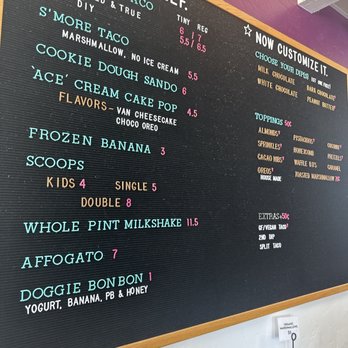 TACO
TRIED & TRUE
DIY
TINY REG
6 / 7
S'MORE TACO 5.5 / 6.5
MARSHMALLOW, NO ICE CREAM
COOKIE DOUGH SANDO 5.5
'ACE' CREAM CAKE POP 6
FLAVORS - VAN CHEESECAKE 4.5
CHOCO OREO
FROZEN BANANA 3
SCOOPS
KIDS 4 SINGLE 5
DOUBLE 8
WHOLE PINT MILKSHAKE 11.5
AFFOGATO 7
DOGGIE BON BON 1
YOGURT, BANANA, PB & HONEY
☆ NOW CUSTOMIZE IT.
CHOOSE YOUR DIP(S)
MILK CHOCOLATE DARK CHOCOLATE
WHITE CHOCOLATE PEANUT BUTTER
TOPPINGS 50¢
ALMONDS PISTACHIOS COCONUT
SPRINKLES HONEYCOMB PRETZELS
CACAO NIBS WAFFLE BITS CARAMEL
OREOS TOASTED MARSHMALLOW
HOUSE MADE
EXTRAS +50¢
GF/VEGAN TACO
2ND DIP
SPLIT TACO